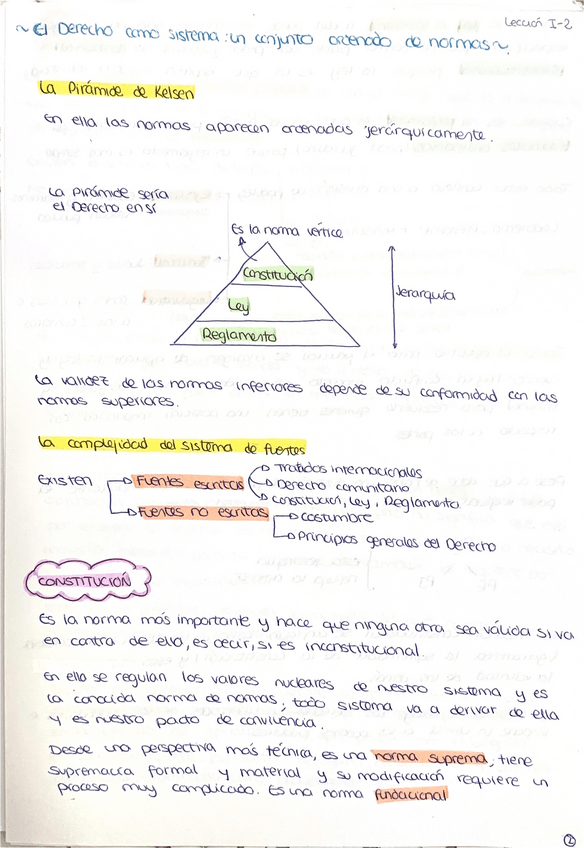 Lección I-2
~ El Derecho como sistema: un conjunto ordenado de normas ~
La Pirámide de Kelsen
En ella las normas aparecen ordenadas jerárquicamente.
La pirámide sería
el Derecho en sí
Es la norma vértice
Constitución
Ley
Reglamento
Jerarquía
La validez de las normas inferiores depende de su conformidad con las
normas superiores.
La complejidad del sistema de fuentes
Existen
Fuentes escritas
Tratados internacionales
Derecho comunitario
Constitución, Ley, Reglamento
Fuentes no escritas
Costumbre
Principios generales del Derecho
CONSTITUCIÓN
Es la norma más importante y hace que ninguna otra sea válida si va
en contra de ello, es decir, si es inconstitucional.
En ella se regulan los valores nucleares de nuestro sistema y es
la conocida norma de normas; todo sistema va a derivar de ella
y es nuestro pacto de convivencia.
Desde una perspectiva más técnica, es una norma suprema, tiene
supremacía formal y material y su modificación requiere un
proceso muy complicado. Es una norma fundacional
2